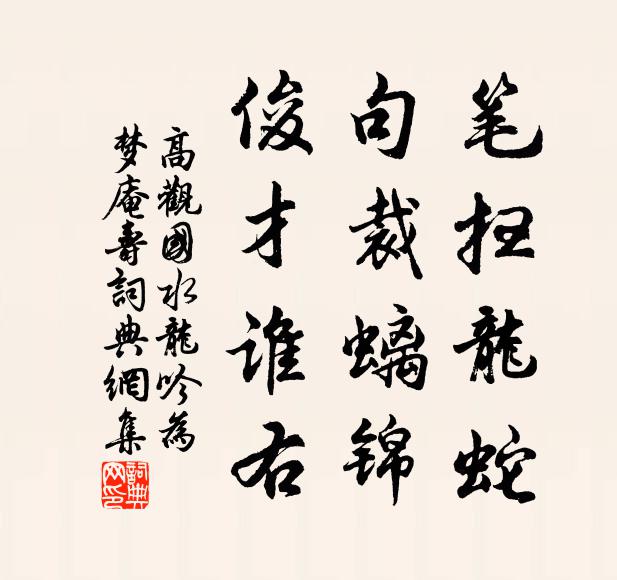 笔扫龍蛇
句裁螭锦
俊才谁右
高觀國水龍吟為
梦庵壽詞典網集
詞典
网印